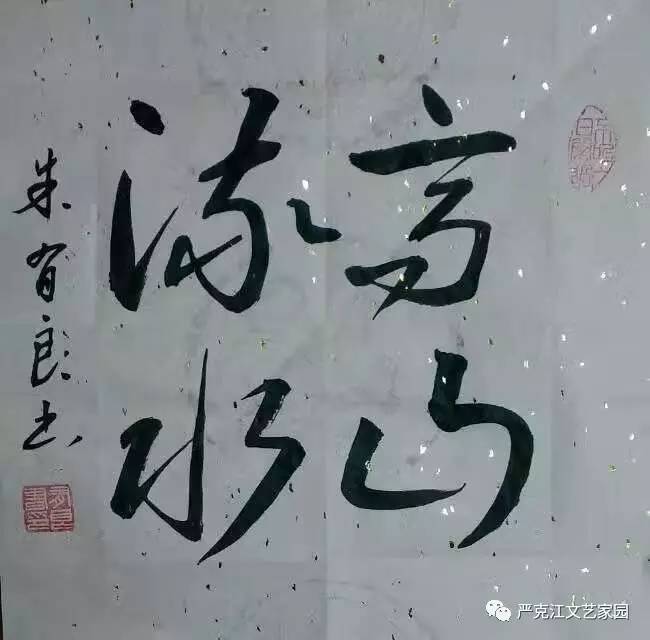 高山
流水
朱省良书
严克江文艺家园